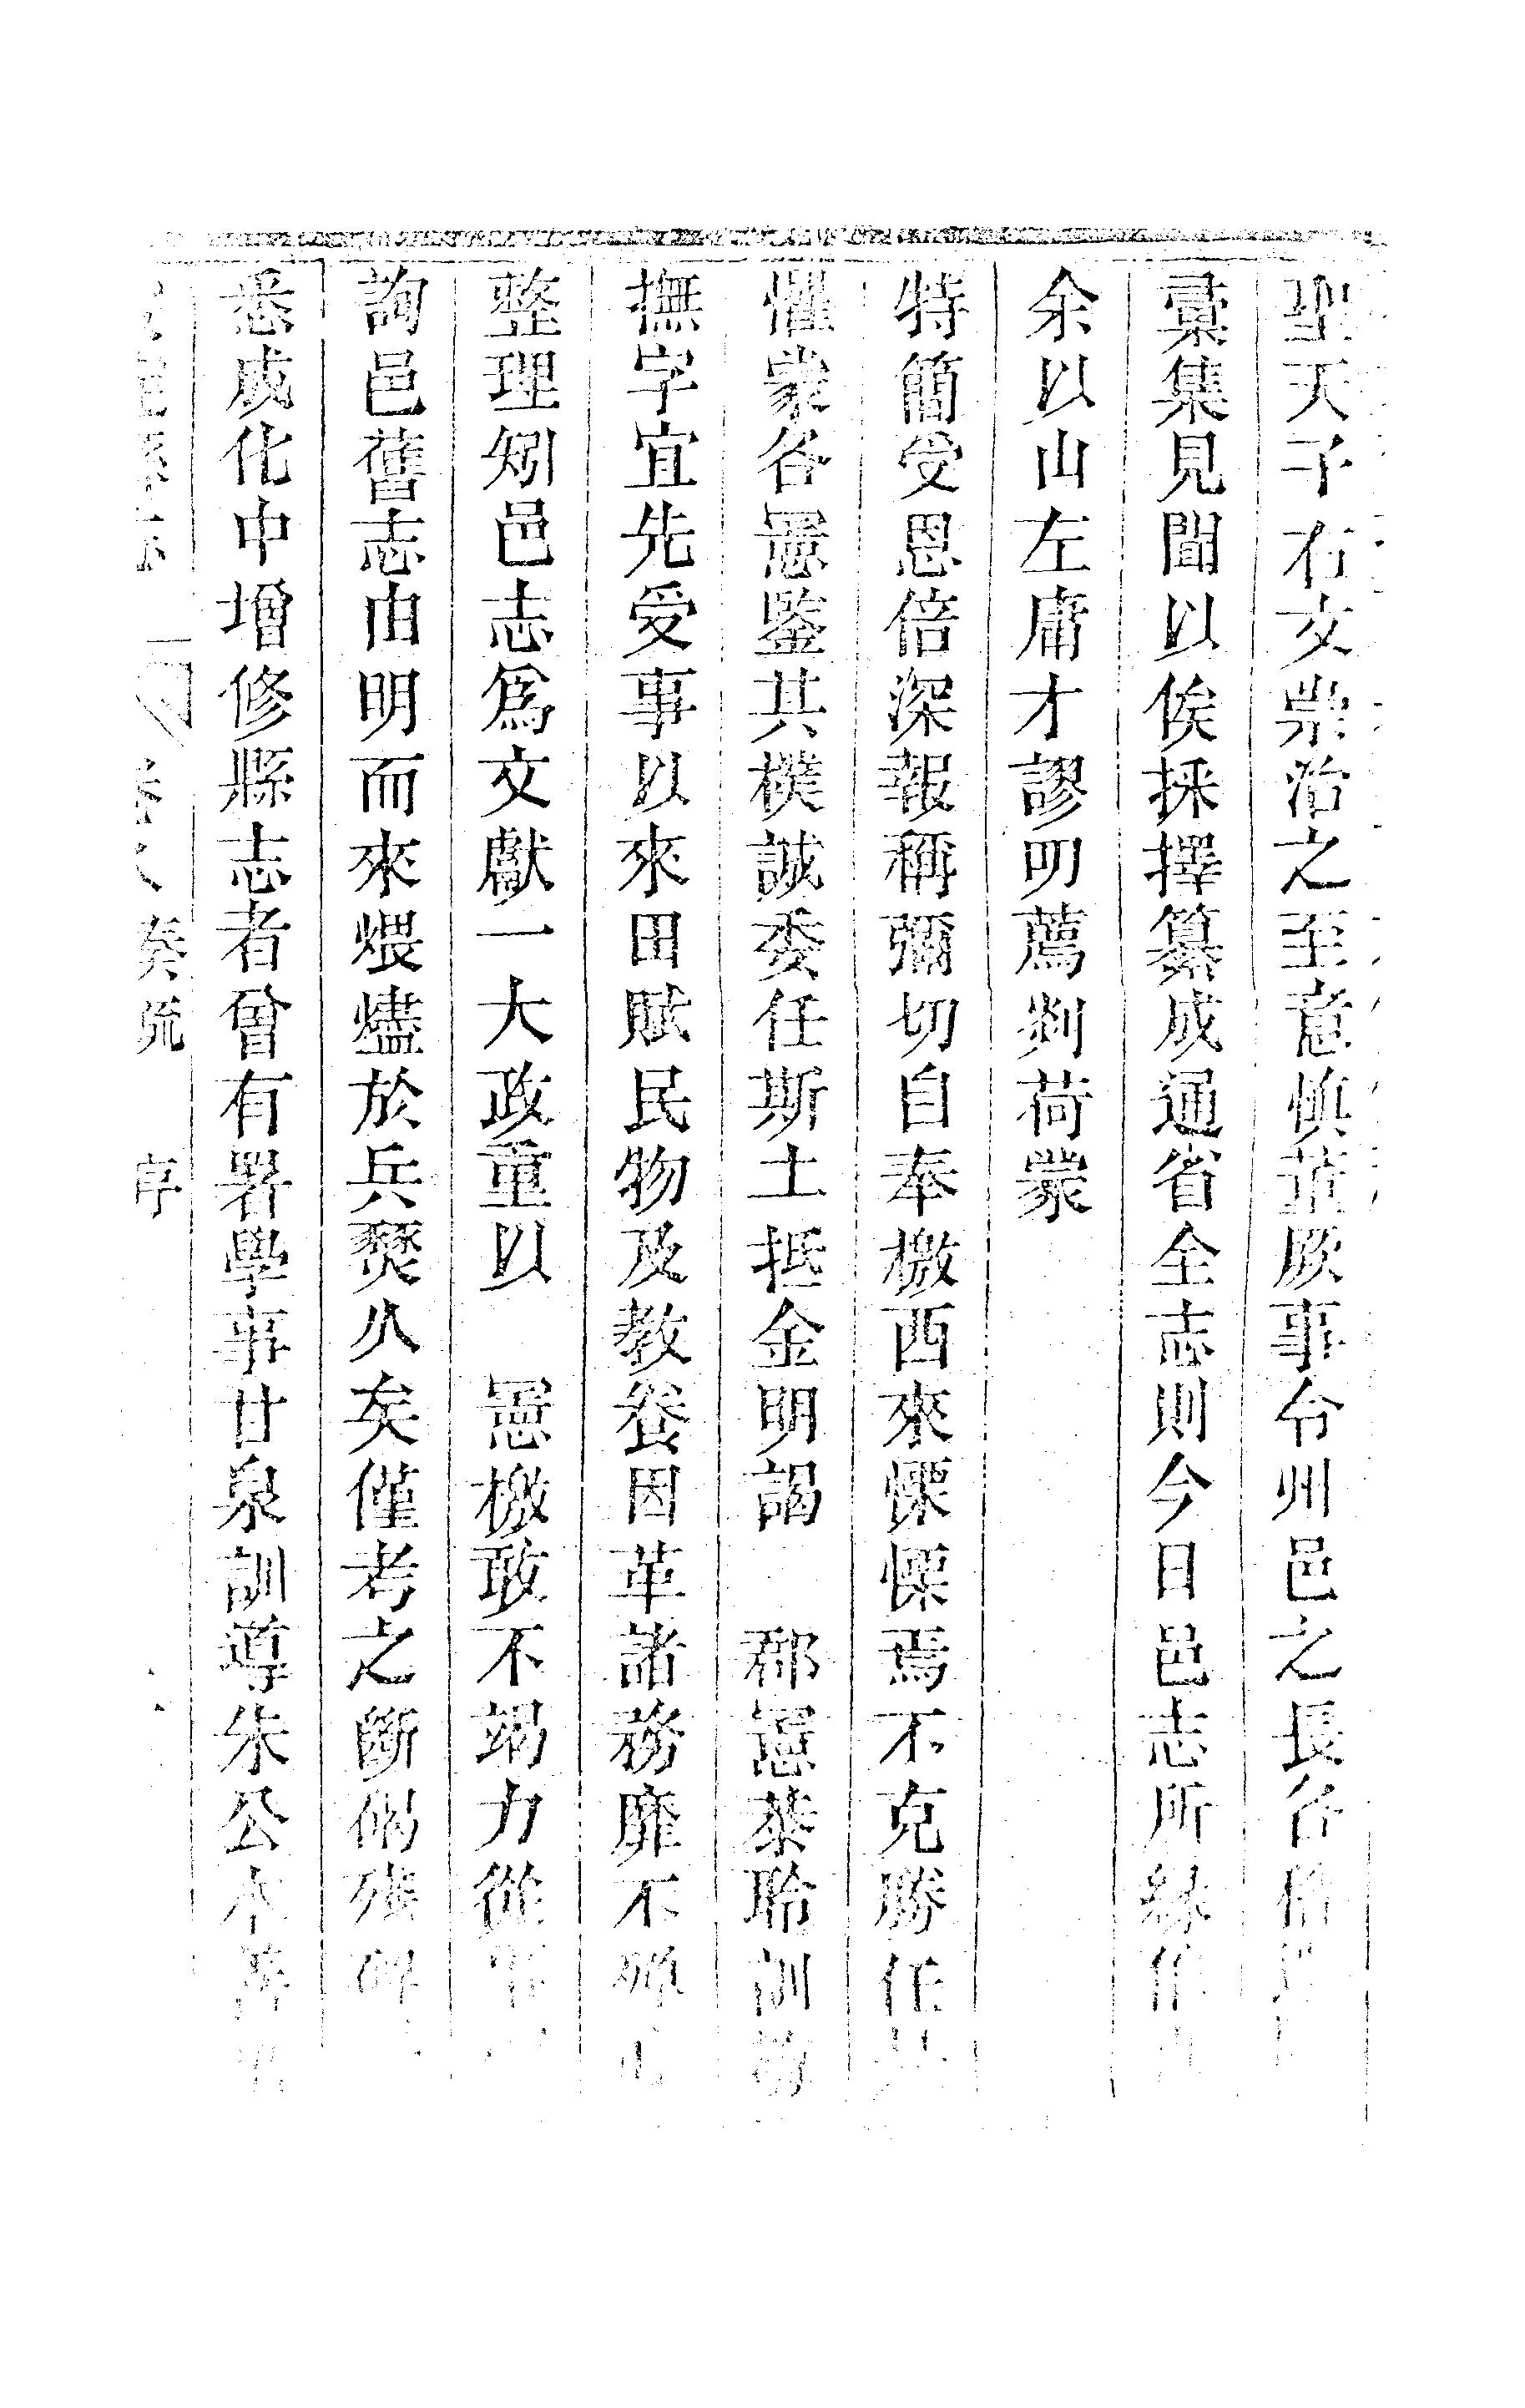 聖天子右文崇治之至意慎董厥事令州邑之長各
彚集見聞以俟採擇纂成通省全志則今日邑志所緣
余以山左庸才謬叨薦剡荷蒙
特簡受恩倍深報稱彌切自奉檄西來慄慄焉不克勝任
懼蒙各憲鑒其樸誠委任斯土抵金明謁 郡憲恭聆訓
撫字宜先受事以來田賦民物及教養因革諸務靡不殫心
整理矧邑志爲文獻一大政重以 憲檄敢不竭力從事
詢邑舊志由明而來煨燼於兵燹久矣僅考之斷碣殘碑
悉成化中增修縣志者曾有署學事甘泉訓導朱公
奏疏 序